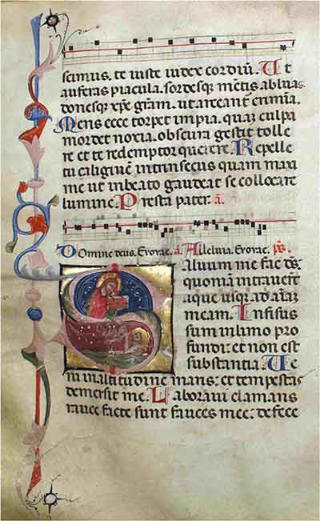 scimus. te iuste iudex cordiū. Ut
auferas piacula. sordesqȝ mētis abluas
donesqȝ xp̄e gr̄am. ut arceant crimīa.
Mens ecce torpet impia. quaȝ culpa
mordet noxia. obscura gestit tolle
re et te redemptor querere. Repelle
tu caliginē intrinsecus quam maxi
me ut in beato gaudeat se collocare
lumine. Presta pater. a.
Domine deus. Evovae. a. Alleluia. Evovae. ps.
Saluum me fac ds̄:
quoniā intraverūt
aque usqȝ ad aīaȝ
meam. Infixus
sum in limo pro
fundi: et non est
substantia. Ve
ni in altitudine maris: et tempestas
demersit me. Laboravi clamans
rauce facte sunt fauces mee: defece